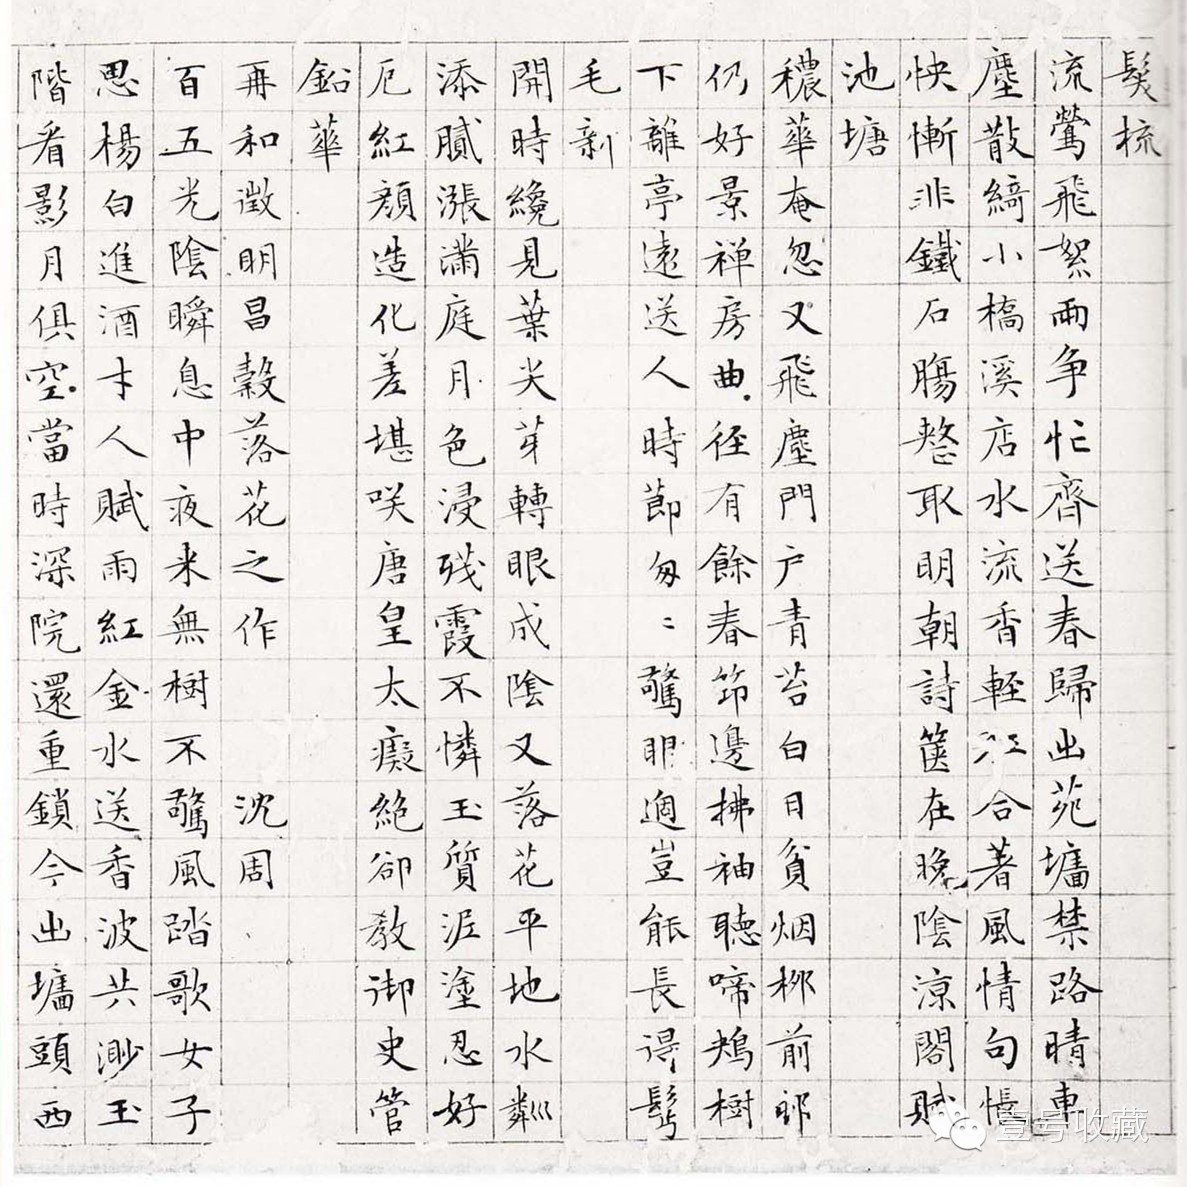 髮梳
流鶯飛絮兩争忙齊送春歸出苑墻禁路晴車
塵散綺小橋溪店水流香輕紅合著風情句悵
怏慚非鐵石腸整取明朝詩篋在晚陰涼閣賦
池塘
穠華奄忽又飛塵門戶青苔白日貧烟柳前邨
仍好景禅房曲径有餘春笻邊拂袖聽啼鴂樹
下離亭遠送人時節匆〻驚眼過豈能長得鬢
毛新
開時纔見葉尖芽轉眼成陰又落花平地水粼
添膩漲滿庭月色浸殘霞不憐玉質泥塗忍好
厄紅顏造化差堪咲唐皇太癡絕卻教御史管
鉛華
再和徵明昌穀落花之作 沈周
百五光陰瞬息中夜来無樹不驚風踏歌女子
思楊白進酒才人賦雨紅金水送香波共渺玉
階看影月俱空當時深院還重鎖今出墻頭西
壹号收藏